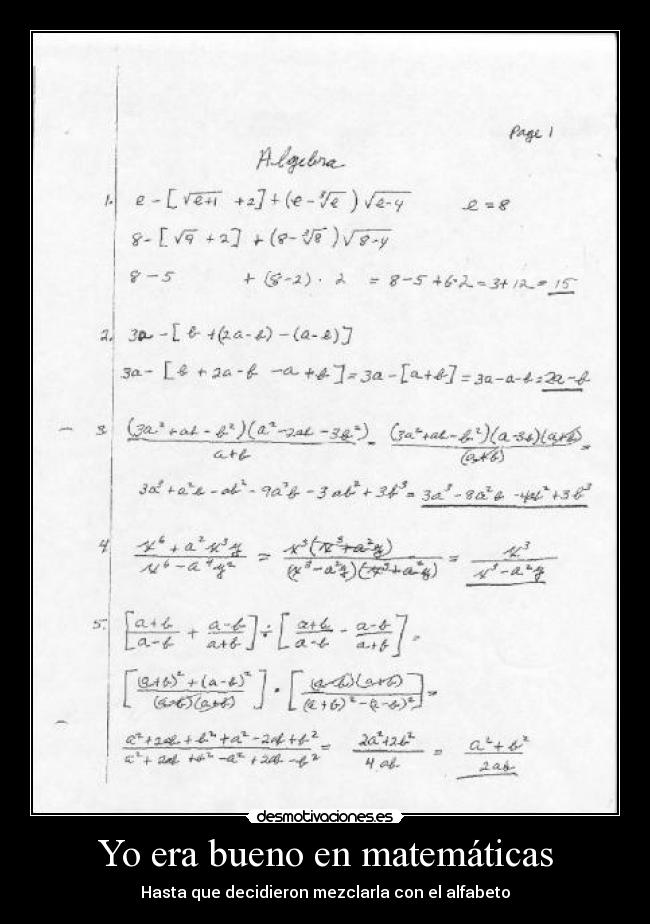 Page 1
Algebra
1. e - [√e+1 + 2] + (e - ³√e) √e-4   e = 8
8 - [√9 + 2] + (8 - ³√8) √8-4
8 - 5 + (8-2) · 2 = 8 - 5 + 6·2 = 3 + 12 = 15
2. 3a - [b + (2a - b) - (a - b)]
3a - [b + 2a - b - a + b] = 3a - [a + b] = 3a - a - b = 2a - b
3. (3a² + ab - b²)(a² - 2ab - 3b²) / a+b = (3a² + ab - b²)(a - 3b)(a+b) / (a+b) =
3a³ + a²b - ab² - 9a²b - 3ab² + 3b³ = 3a³ - 8a²b - 4ab² + 3b³
4. x⁶ + a²x³y / x⁶ - a⁴y² = x³(x³ + a²y) / (x³ - a²y)(x³ + a²y) = x³ / x³ - a²y
5. [a+b / a-b + a-b / a+b] ÷ [a+b / a-b - a-b / a+b] =
[(a+b)² + (a-b)² / (a-b)(a+b)] · [(a-b)(a+b) / (a+b)² - (a-b)²] =
a² + 2ab + b² + a² - 2ab + b² / a² + 2ab + b² - a² + 2ab - b² = 2a² + 2b² / 4ab = a² + b² / 2ab
desmotivaciones.es
Yo era bueno en matemáticas
Hasta que decidieron mezclarla con el alfabeto